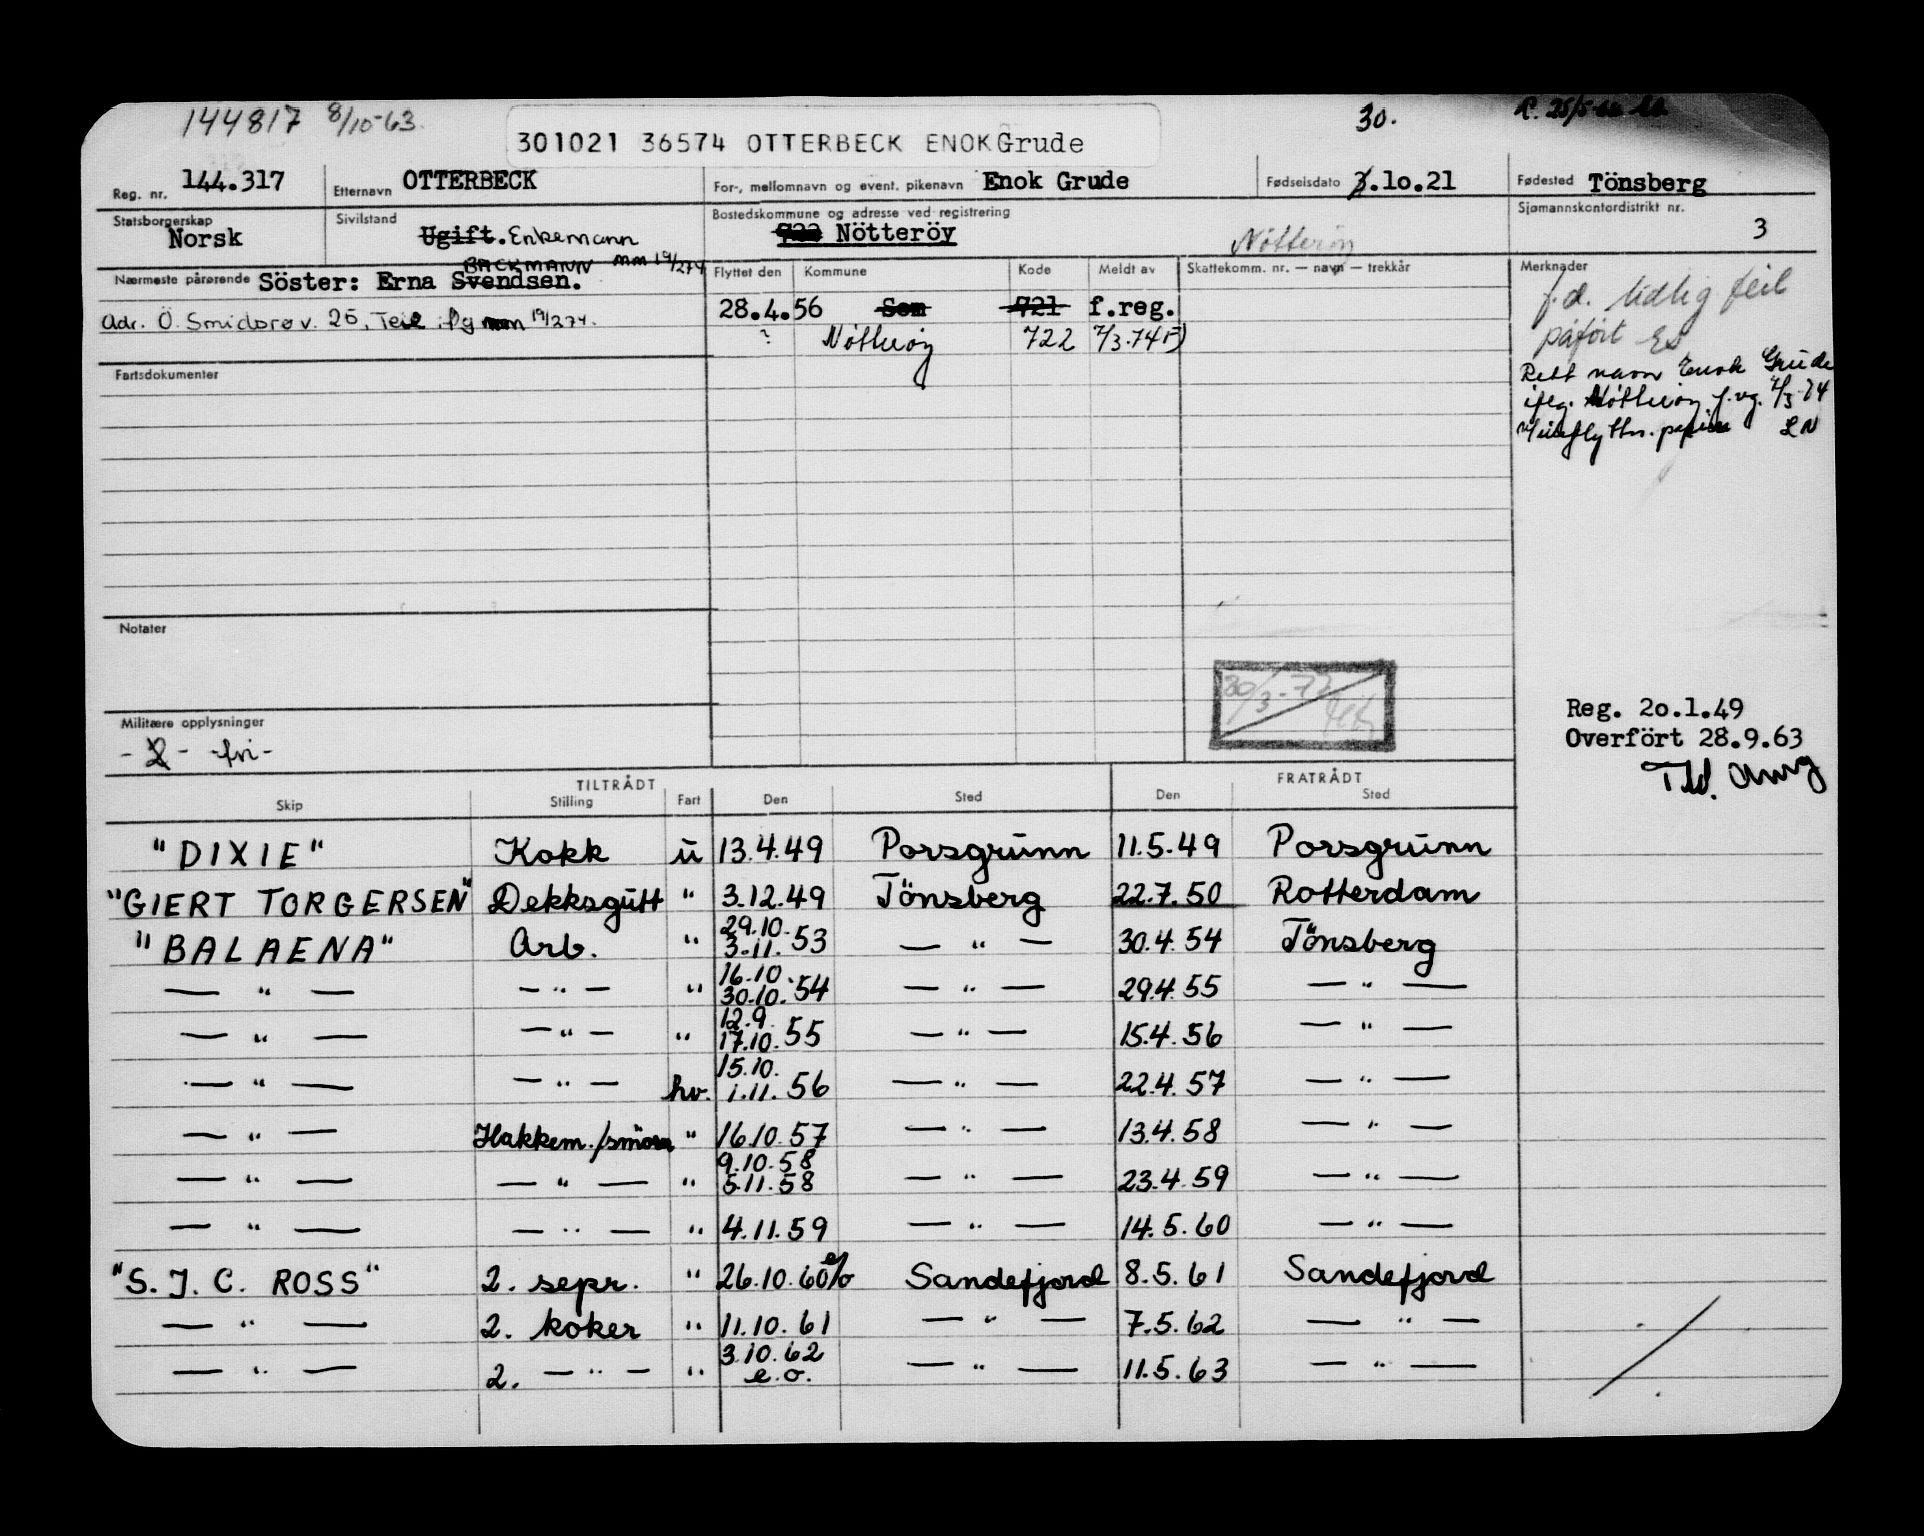 144817 8/10-63.
301021 36574 OTTERBECK ENOK Grude
30.
Reg. nr. 144.317 Etternavn OTTERBECK For-, mellomnavn og event. pikenavn Enok Grude Fødselsdato 3.10.21 Fødested Tönsberg
Statsborgerskap Norsk Sivilstand Ugift. Enkemann Bostedskommune og adresse ved registrering 722 Nötteröy Nötteröy Sjømannskontordistrikt nr. 3
BACKMANN mm 19/2 74
Nærmeste pårørende Söster: Erna Svendsen. Flyttet den Kommune Kode Meldt av Skattekomm. nr. — navn — trekkår Merknader
Adr. Ö. Smidsrøv. 25, Teie 19/2 74.
28.4.56 Sem 721 f.reg.
? Nötteröy 722 7/3.74
f.d. tidlig feil
påført Es
Rett navn Enok Grude
iflg. Nötteröy f.reg. 7/3-74
LN
Fartsdokumenter
Notater
30/3-72
Militære opplysninger
- 2 - -fri-
Reg. 20.1.49
Overfört 28.9.63
TILTRÅDT FRATRÅDT
Skip Stilling Fart Den Sted Den Sted
"DIXIE" Kokk u 13.4.49 Porsgrunn 11.5.49 Porsgrunn
"GIERT TORGERSEN" Dekksgutt " 3.12.49 Tönsberg 22.7.50 Rotterdam
"BALAENA" Arb. " 29.10. 3.11. 53 — " — 30.4.54 Tönsberg
— " — — " — " 16.10. 30.10. 54 — " — 29.4.55 — " —
— " — — " — " 12.9. 17.10. 55 — " — 15.4.56 — " —
— " — — " — hv. 15.10. 1.11. 56 — " — 22.4.57 — " —
— " — Hakkem./smörer " 16.10.57 — " — 13.4.58 — " —
— " — — " — " 9.10.58 5.11.58 — " — 23.4.59 — " —
— " — — " — " 4.11.59 — " — 14.5.60 — " —
"S. J. C. ROSS" 2. sepr. " 26.10.60 e/o Sandefjord 8.5.61 Sandefjord
— " — 2. koker " 11.10.61 — " — 7.5.62 — " —
— " — 2. — " — " 3.10.62 e.o. — " — 11.5.63 — " —